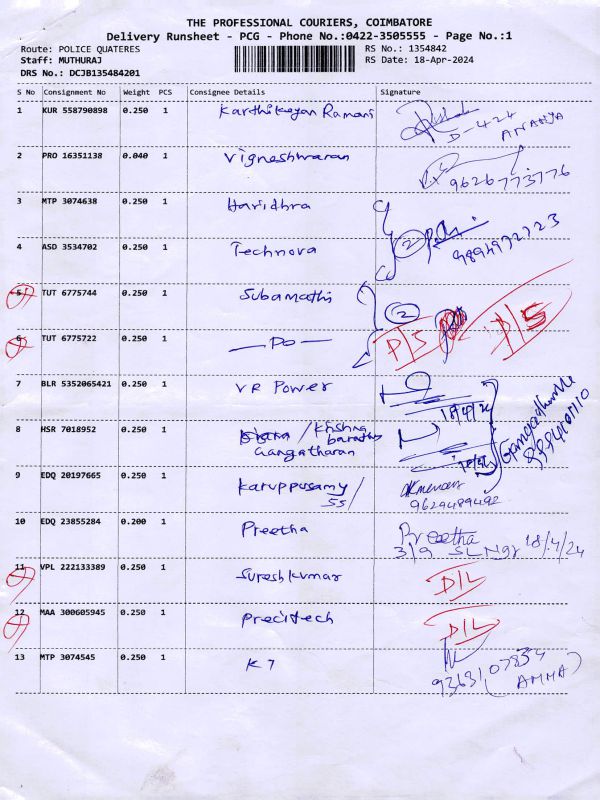 THE PROFESSIONAL COURIERS, COIMBATORE
Delivery Runsheet - PCG - Phone No.:0422-3505555 - Page No.:1
Route: POLICE QUATERES RS No.: 1354842
Staff: MUTHURAJ RS Date: 18-Apr-2024
DRS No.: DCJB135484201
S No Consignment No Weight PCS Consignee Details Signature
1 KUR 558790898 0.250 1 Karthikeyan Ramani D-424 ANANYA
2 PRO 16351138 0.040 1 Vigneshwaran 9626773776
3 MTP 3074638 0.250 1 Haridhra
4 ASD 3534702 0.250 1 Technova 2
5 TUT 6775744 0.250 1 Subamathi 2
6 TUT 6775722 0.250 1 —Do— P/S D/S
7 BLR 5352065421 0.250 1 VR Power 18/4/24
8 HSR 7018952 0.250 1 / Krishna
Gangatharan
9 EDQ 20197665 0.250 1 Karuppusamy /
SS/ 9629489492
10 EDQ 23855284 0.200 1 Preetha Preetha 18/4/24
319 SL Ngr
11 VPL 222133389 0.250 1 Sureshkumar D/L
12 MAA 300605945 0.250 1 Precitech D/L
13 MTP 3074545 0.250 1 K7 9363107834
(AMMA)